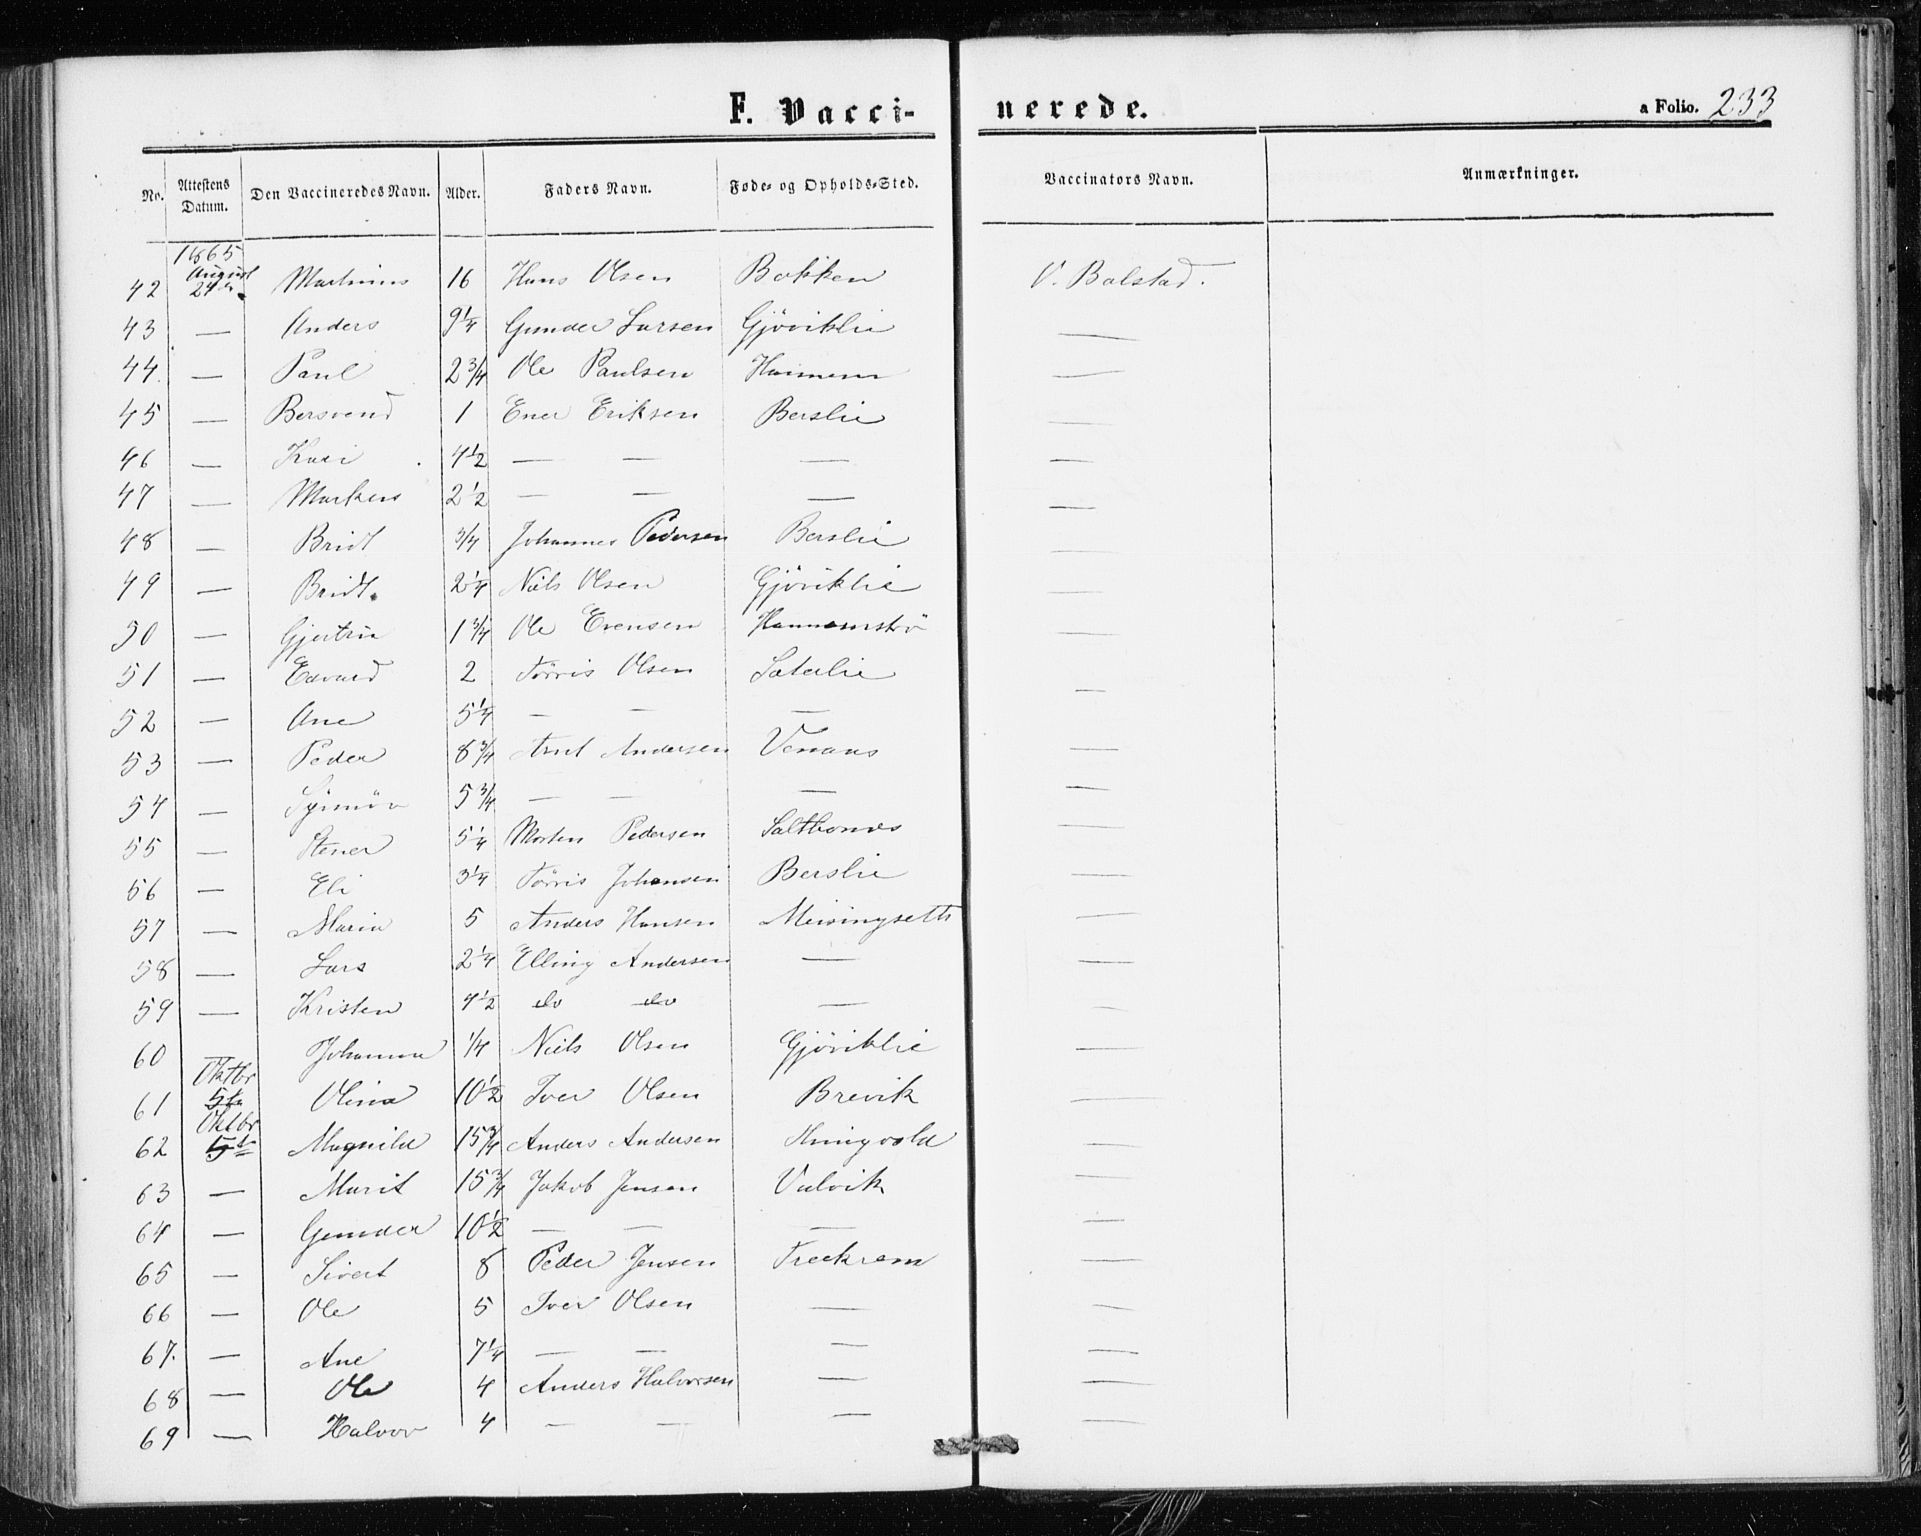 F. Vacci- nerede. a Folio. 233
No. Attestens Datum. Den Vaccineredes Navn. Alder. Faders Navn. Føde- og Opholds-Sted. Vaccinators Navn. Anmærkninger.
1865
August
42 24de Martinus 16 Hans Olsen Bakken V. Bolstad.
43 — Anders 9 1/4 Gunder Larsen Gjöviklie —
44. — Paul 2 3/4 Ole Paulsen —
45 — Bersvend 1 Ener Eriksen Berslie —
46 — Kari 4 1/2 — — — —
47 — Markus 2 1/2 — — — —
48 — Bridt 3/4 Johannes Pedersen Berslie —
49 — Bridt 2 1/4 Niels Olsen Gjöviklie —
50 — Gjertru 1 3/4 Ole Evensen —
51 — Edvard 2 Törris Olsen Saterlie —
52 — Ane 5 1/4 — — —
53 — Peder 8 3/4 Arnt Andersen Venaas —
54 — Synnöv 5 3/4 — — — —
55 — Stener 5 1/4 Morten Pedersen Saltbones —
56 — Eli 3 1/4 Törris Johansen Berslie —
57 — Maria 5 Anders Hansen Meisingseth —
58 — Lars 2 1/4 Elling Andersen — —
59 — Kristen 4 1/2 do do — —
60 Johanna 1/4 Niels Olsen Gjöviklie —
Oktbr
61 5te Olina 10 1/2 Iver Olsen Brevik —
Oktbr
62 5te Magnild 15 3/4 Anders Andersen —
63 — Marit 15 3/4 Jakob Jensen Valvik —
64 — Gunder 10 1/2 — — — —
65 — Sivert 8 Peder Jensen Treekrem —
66 — Ole 5 Iver Olsen — —
67. — Ane 7 1/4 — — — —
68 — Ole 4 Anders Halvorsen — —
69 — Halvor 4 — — — —